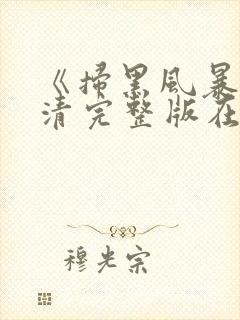 《掃黑風暴
清完整版在
穆光宗